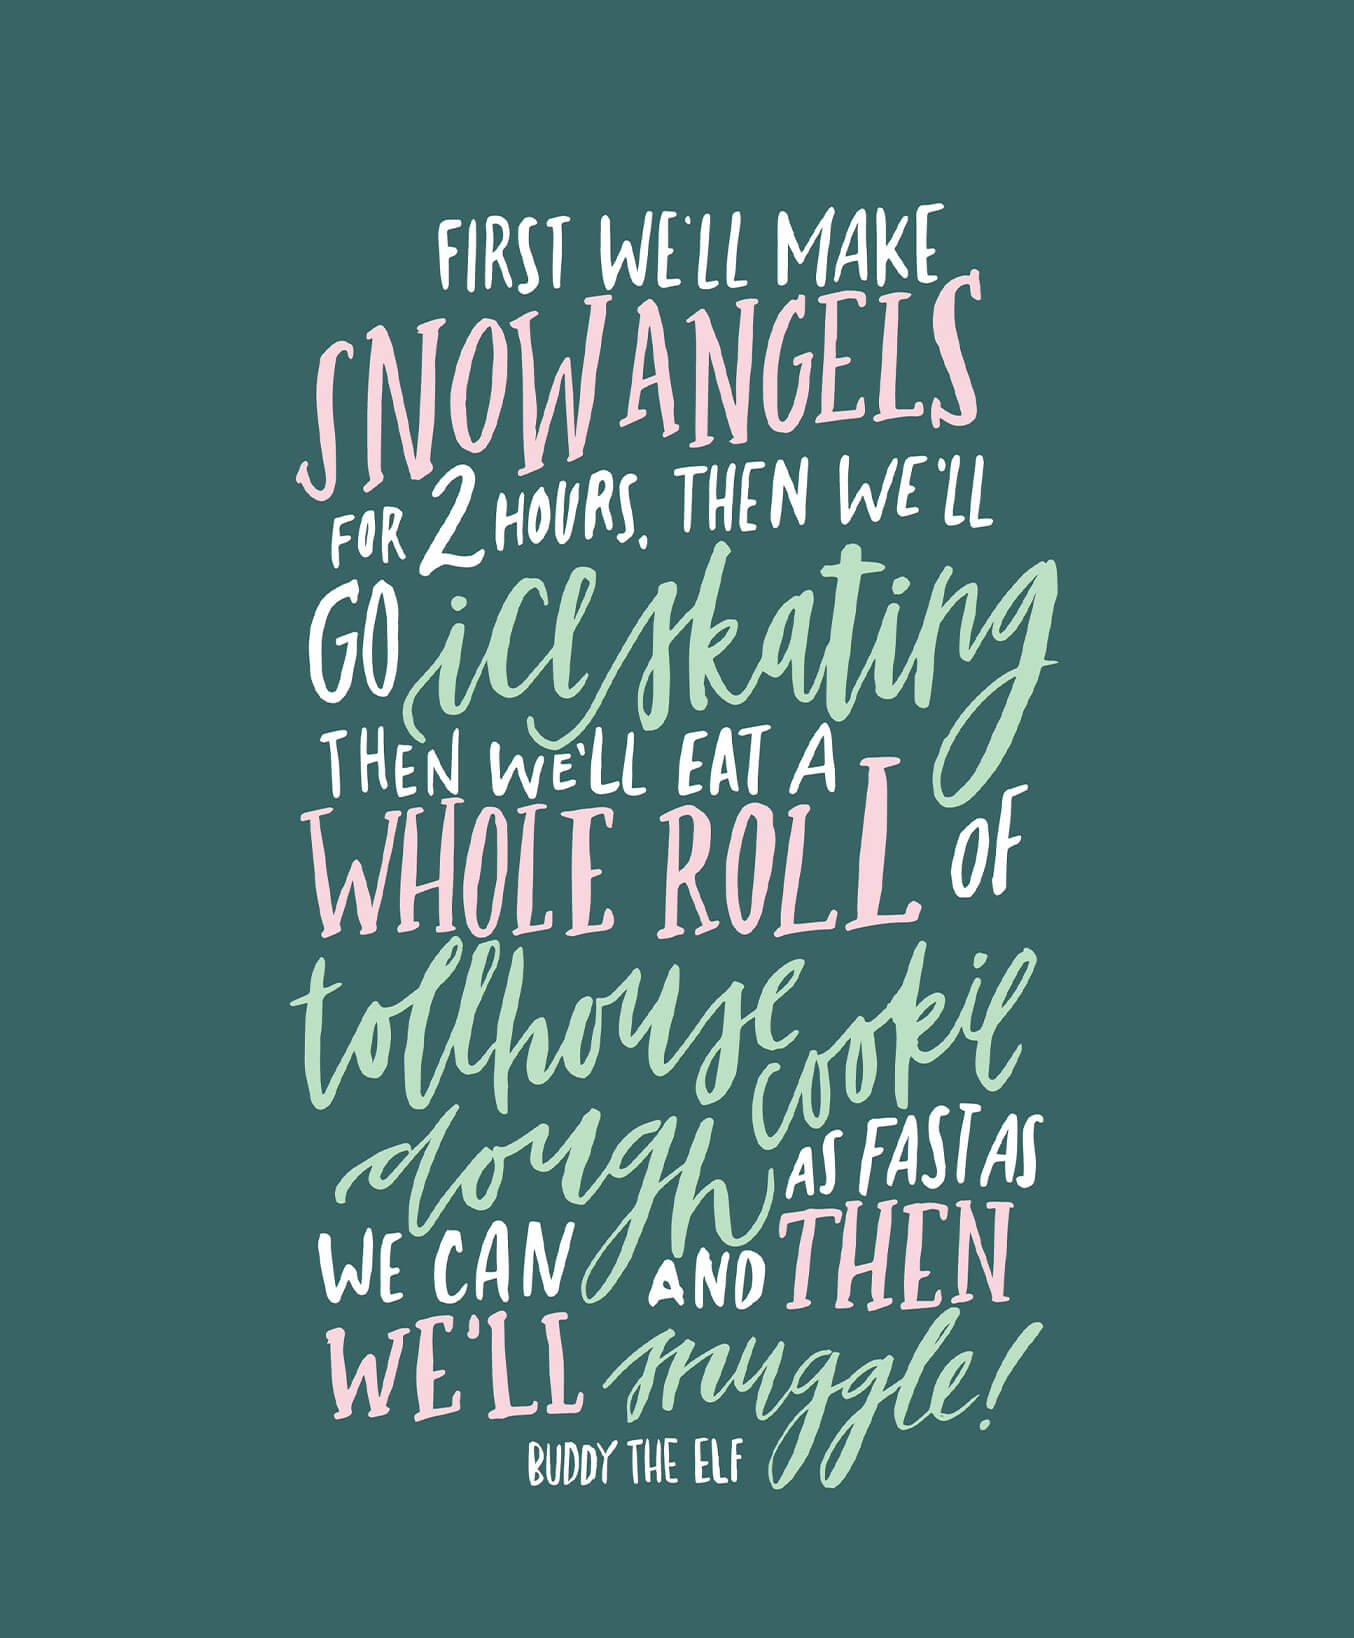 FIRST WE'LL MAKE
SNOW ANGELS
FOR 2 HOURS. THEN WE'LL
GO ice skating
THEN WE'LL EAT A
WHOLE ROLL OF
tollhouse cookie
dough AS FAST AS
WE CAN AND THEN
WE'LL snuggle!
BUDDY THE ELF